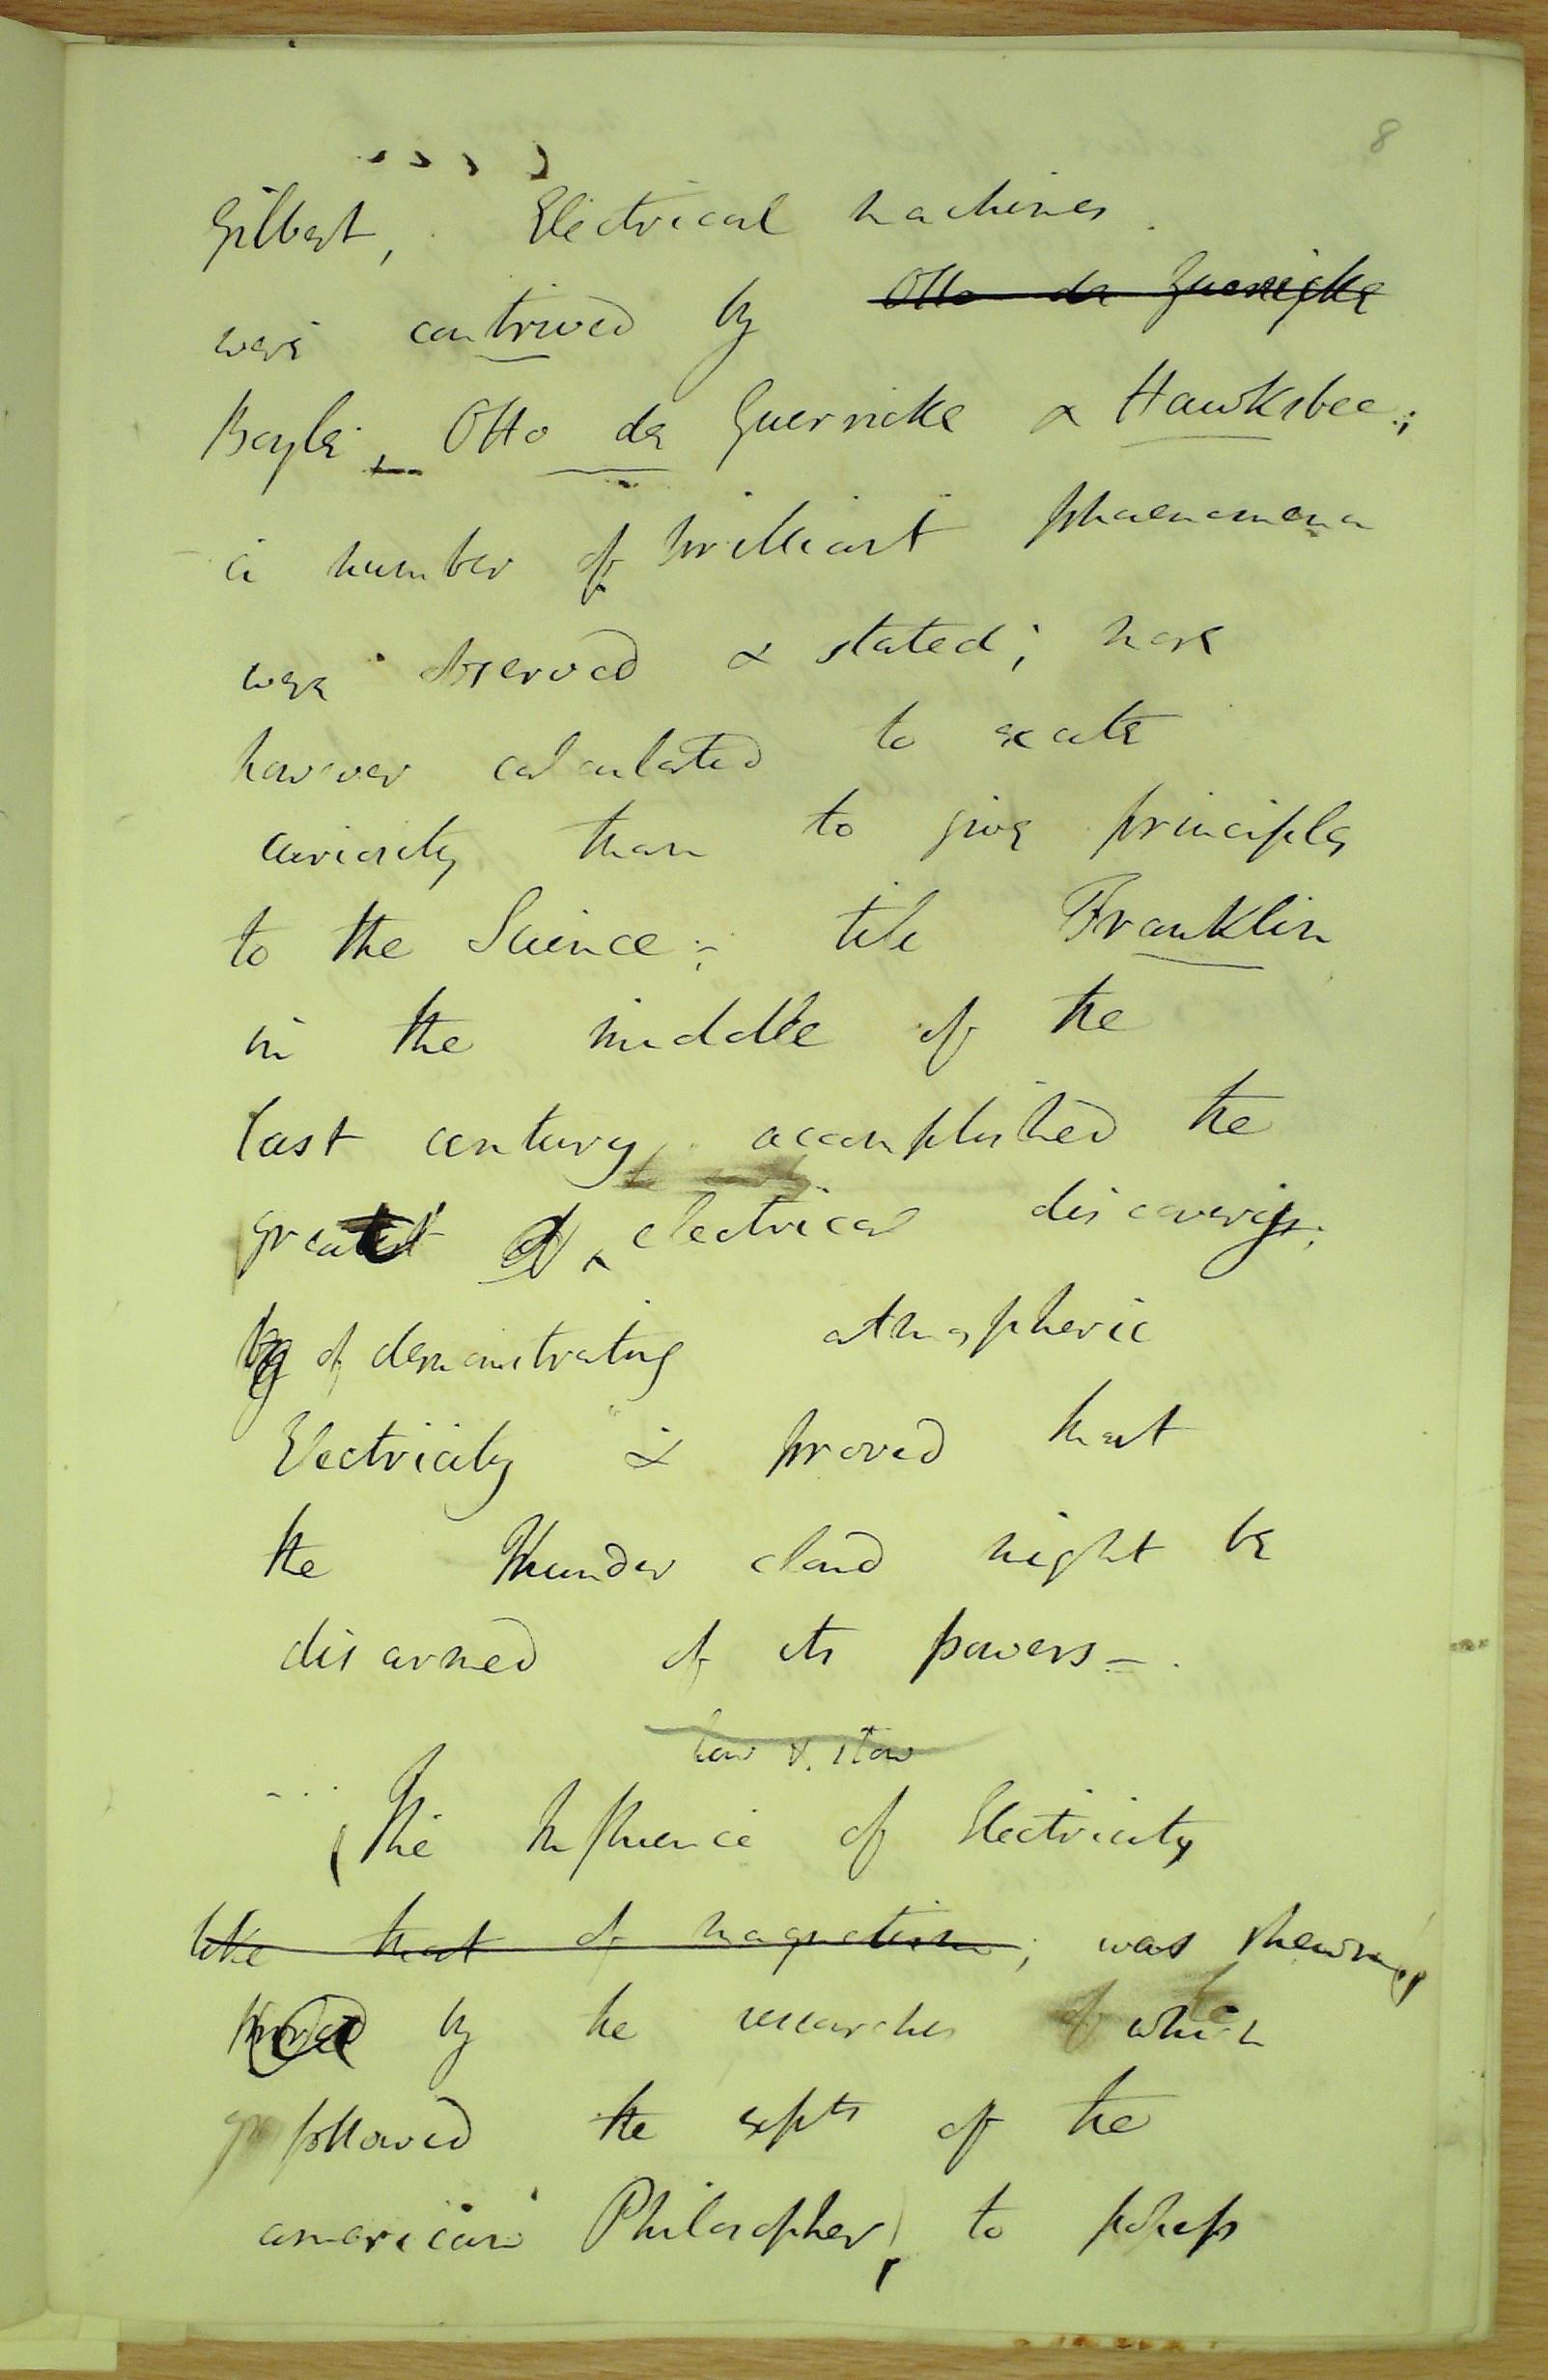 8
Gilbert, Electrical machines
were contrived by Otto de Guericke
Boyle, Otto de Guernicke & Hawksbee;
a number of brilliant phaenomena
were observed & stated; more
however calculated to excite
curiosity than to give principles
to the Science; till Franklin
in the middle of the
last century, accomplished the
greatest of electrical discoveries;
by of demonstrating atmospheric
Electricity & proved that
the Thunder cloud might be
disarmed of its powers –
The Influence of Electricity
like that of magnetism; was shewn
by the researches which
followed the expts of the
american Philosopher, to possess